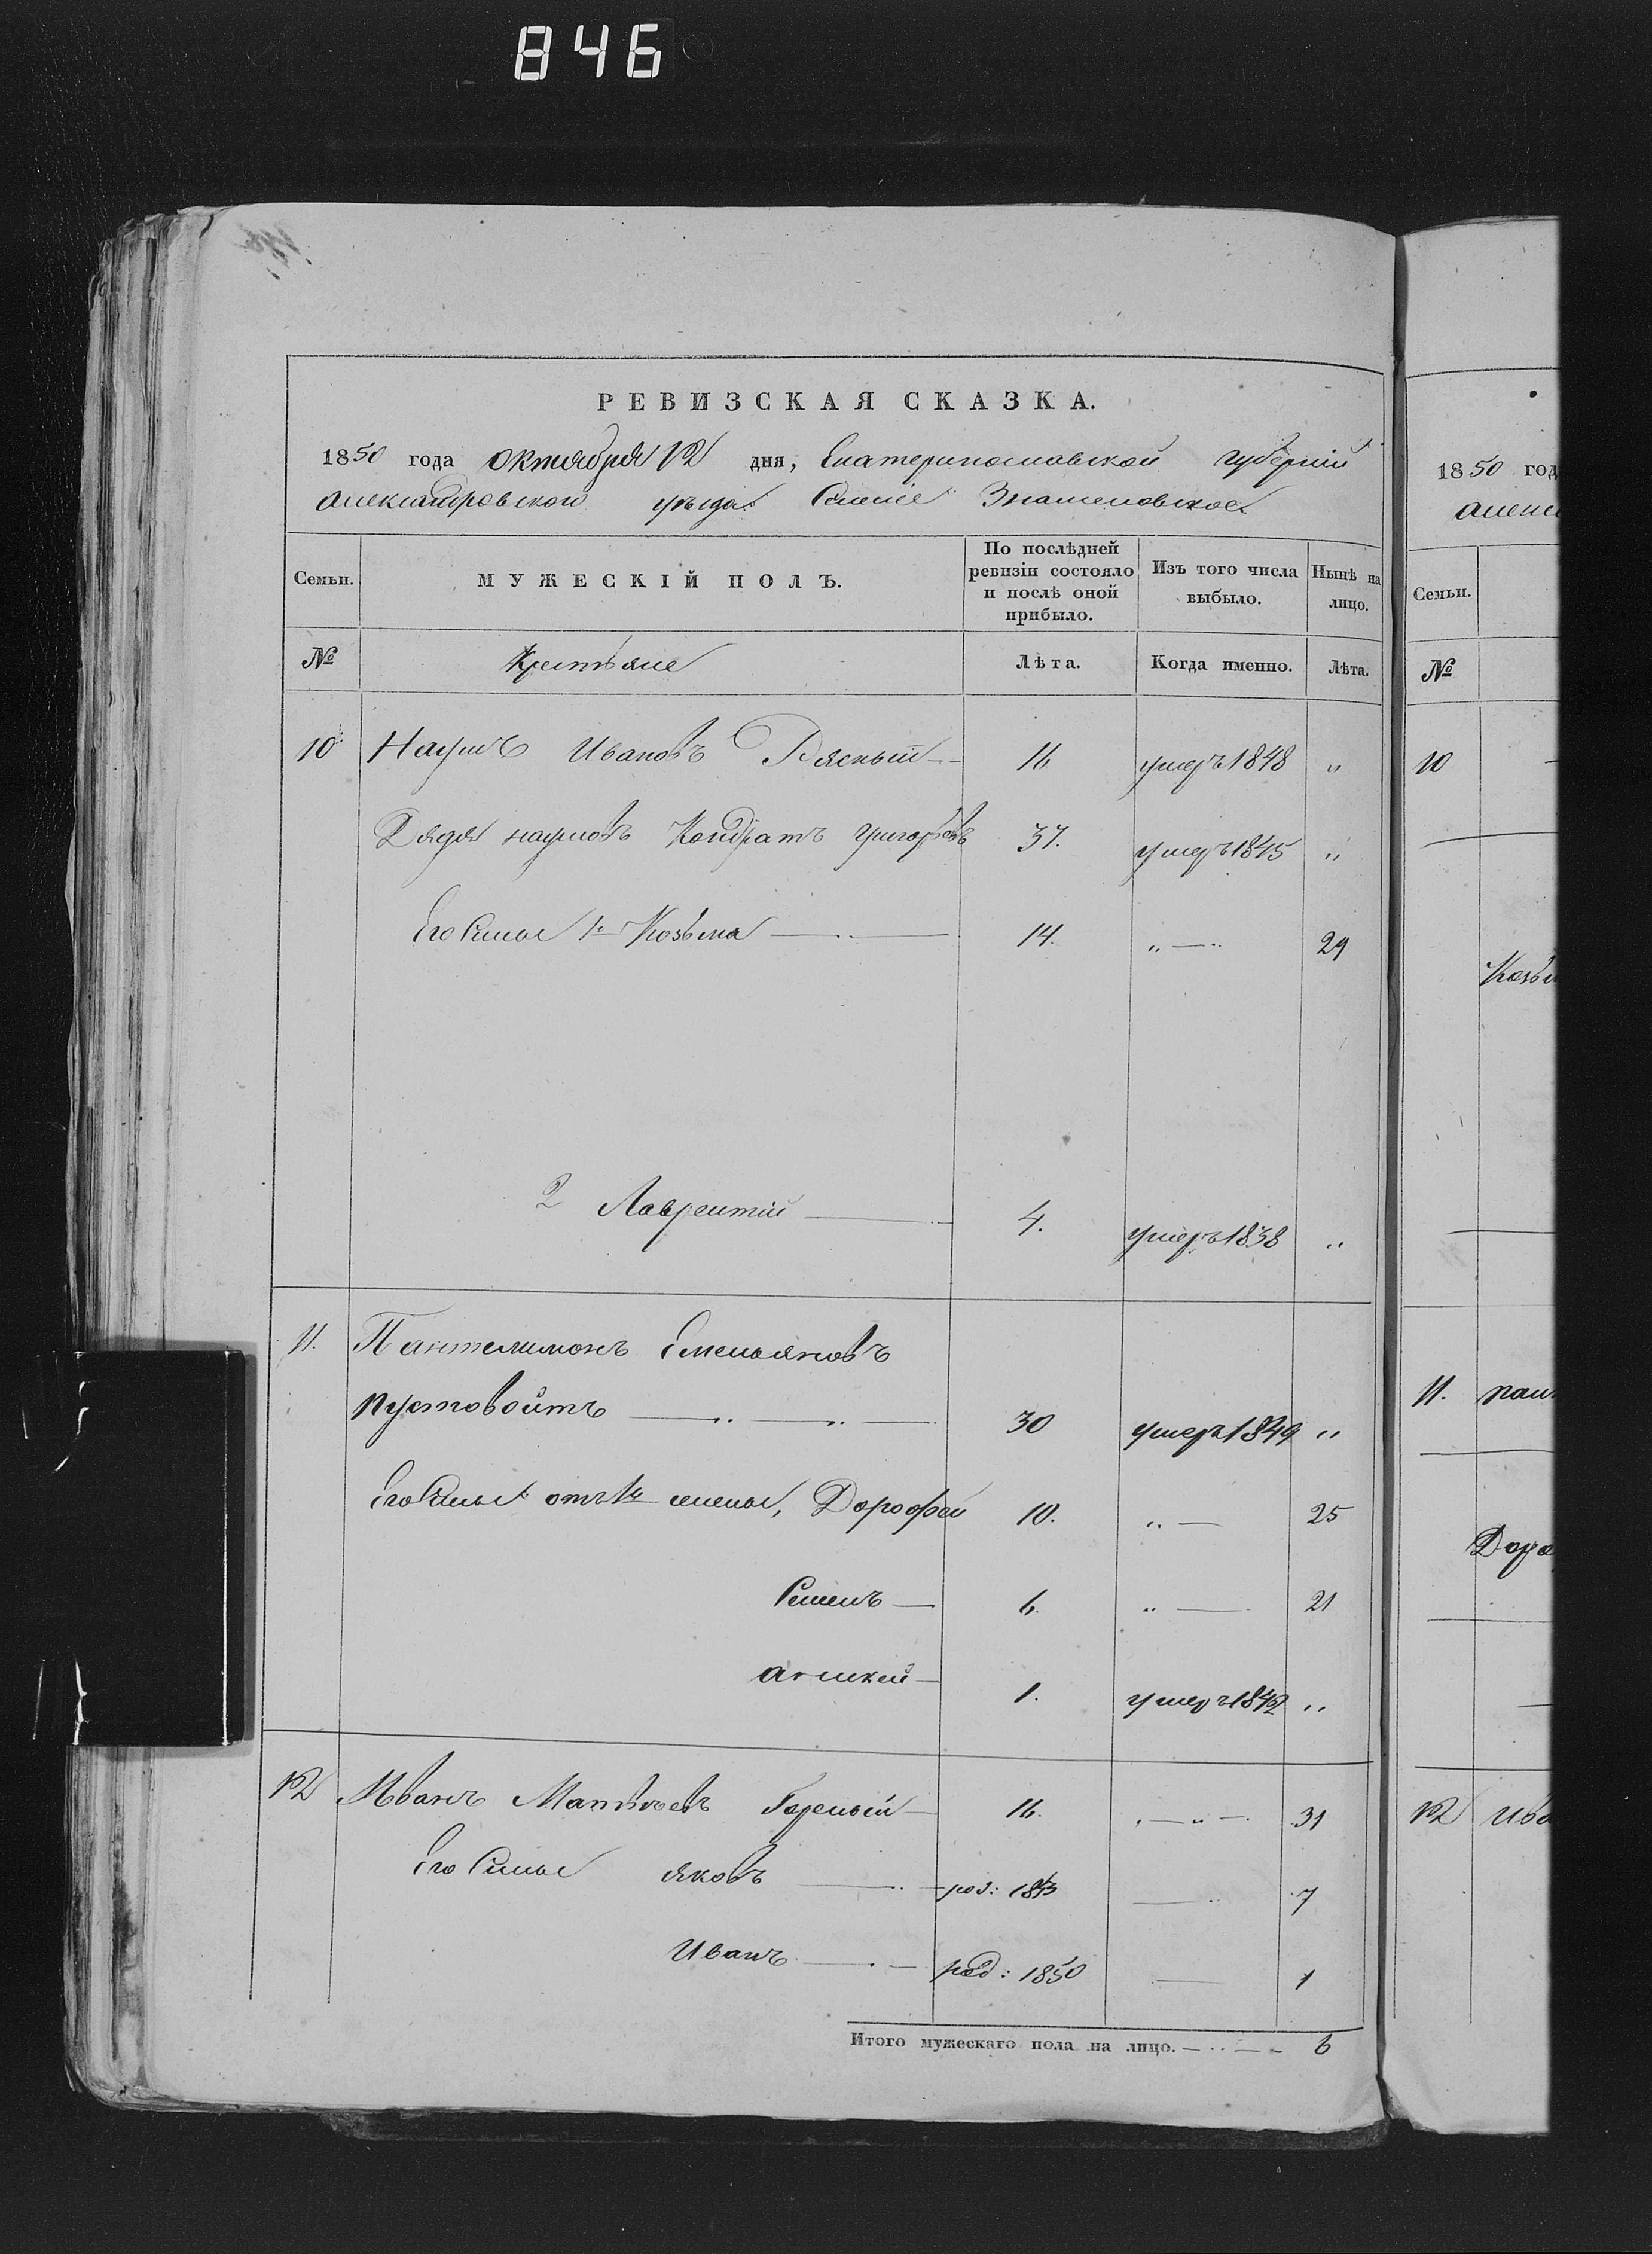 846
РЕВИЗСКАЯ СКАЗКА.
1850 года октября 12 дня, Екатеринославской губерніи
александровского уѣзда Селеніе Знаменовское
Семьи. МУЖЕСКІЙ ПОЛЪ. По послѣдней ревизіи состояло и послѣ оной прибыло. Изъ того числа выбыло. Нынѣ на лицо.
№ Крестьяне Лѣта. Когда именно. Лѣта.
10 Наумъ Ивановъ Рясный 16 умеръ 1848 "
Дядя наумовъ Кондратъ григорьевъ 37. умеръ 1845 "
Его Сынье 1й Козьма 14. " 29
2 Лаврентій 4. умеръ 1838 "
11. Пантелимонъ Емельяновъ
пустовойтъ 30 умеръ 1849 "
Его Сынье отъ 1й жены, Дорофей 10. " 25
Семенъ 6. " 21
алексей 1. умеръ 1842 "
12 Иванъ Матвѣевъ 16. " 31
Его Сынье яковъ род: 1843 7
Иванъ род: 1850 1
Итого мужескаго пола на лицо. 6
1850 год
Семьи.
№
10
11.
12